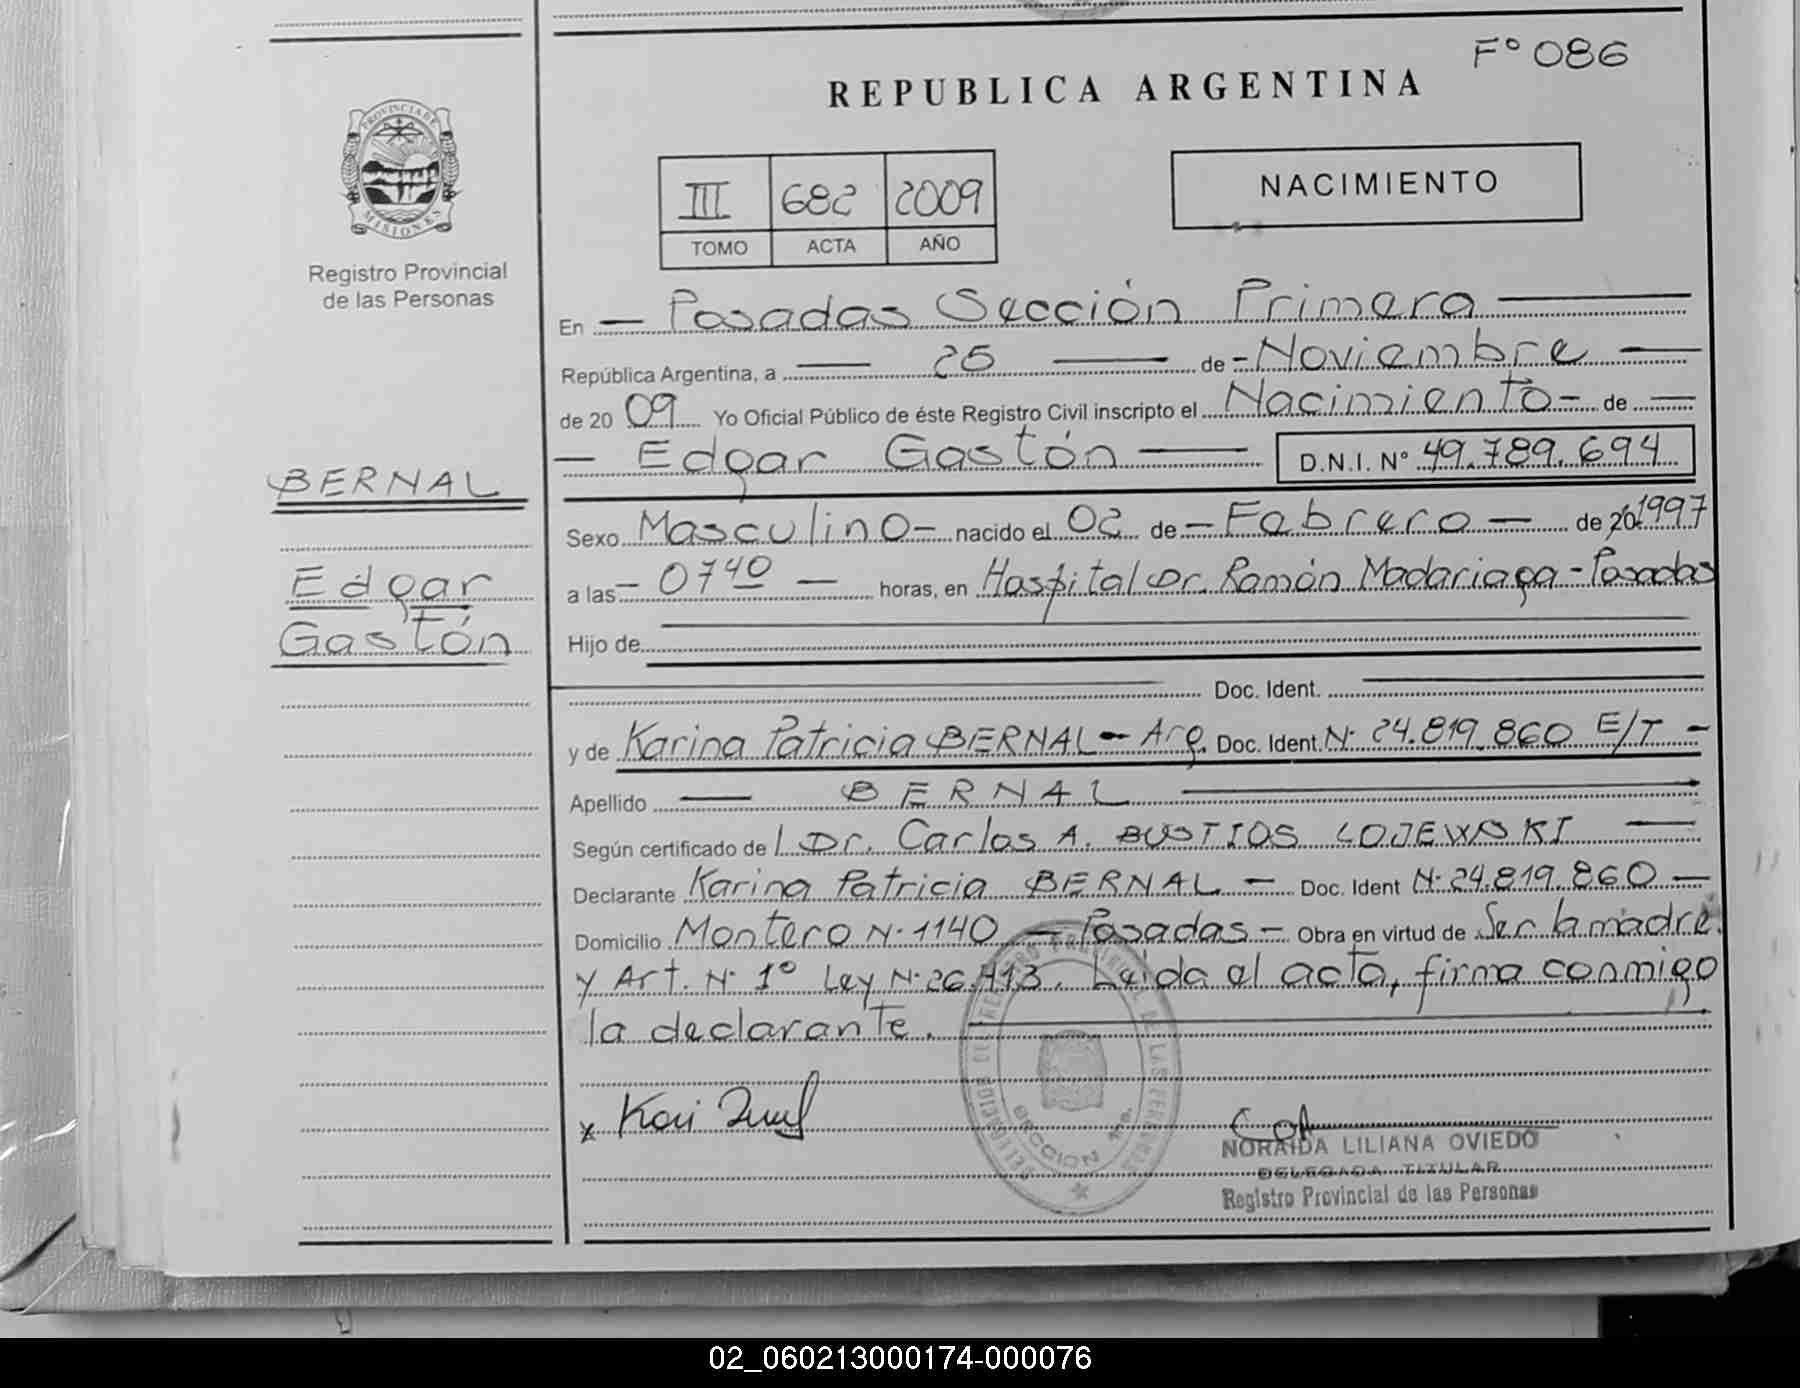 Fº 086
REPUBLICA ARGENTINA
PROVINCIA DE
MISIONES
Registro Provincial
de las Personas
III 682 2009
TOMO ACTA AÑO
NACIMIENTO
En — Posadas Sección Primera —
República Argentina, a — 25 — de - Noviembre —
de 20 09 Yo Oficial Público de éste Registro Civil inscripto el Nacimiento - de —
— Edgar Gastón — D.N.I. Nº 49.789.694
BERNAL
Edgar
Gastón
Sexo Masculino - nacido el 02 de - Febrero - de 20 1997
a las - 0740 - horas, en Hospital Dr. Ramón Madariaga - Posadas
Hijo de
Doc. Ident.
y de Karina Patricia BERNAL - Arg. Doc. Ident. Nº 24.819.860 E/T -
Apellido — BERNAL —
Según certificado de l Dr. Carlos A. BUSTIOS LOJEWSKI —
Declarante Karina Patricia BERNAL - Doc. Ident Nº 24.819.860 —
Domicilio Montero Nº 1140 - Posadas - Obra en virtud de Ser la madre
y Art. Nº 1º Ley Nº 26.413. Leida el acta, firma conmigo
la declarante.
x Kari
SECCION 1ra.
NORAIDA LILIANA OVIEDO
DELEGADA TITULAR
Registro Provincial de las Personas
02_060213000174-000076